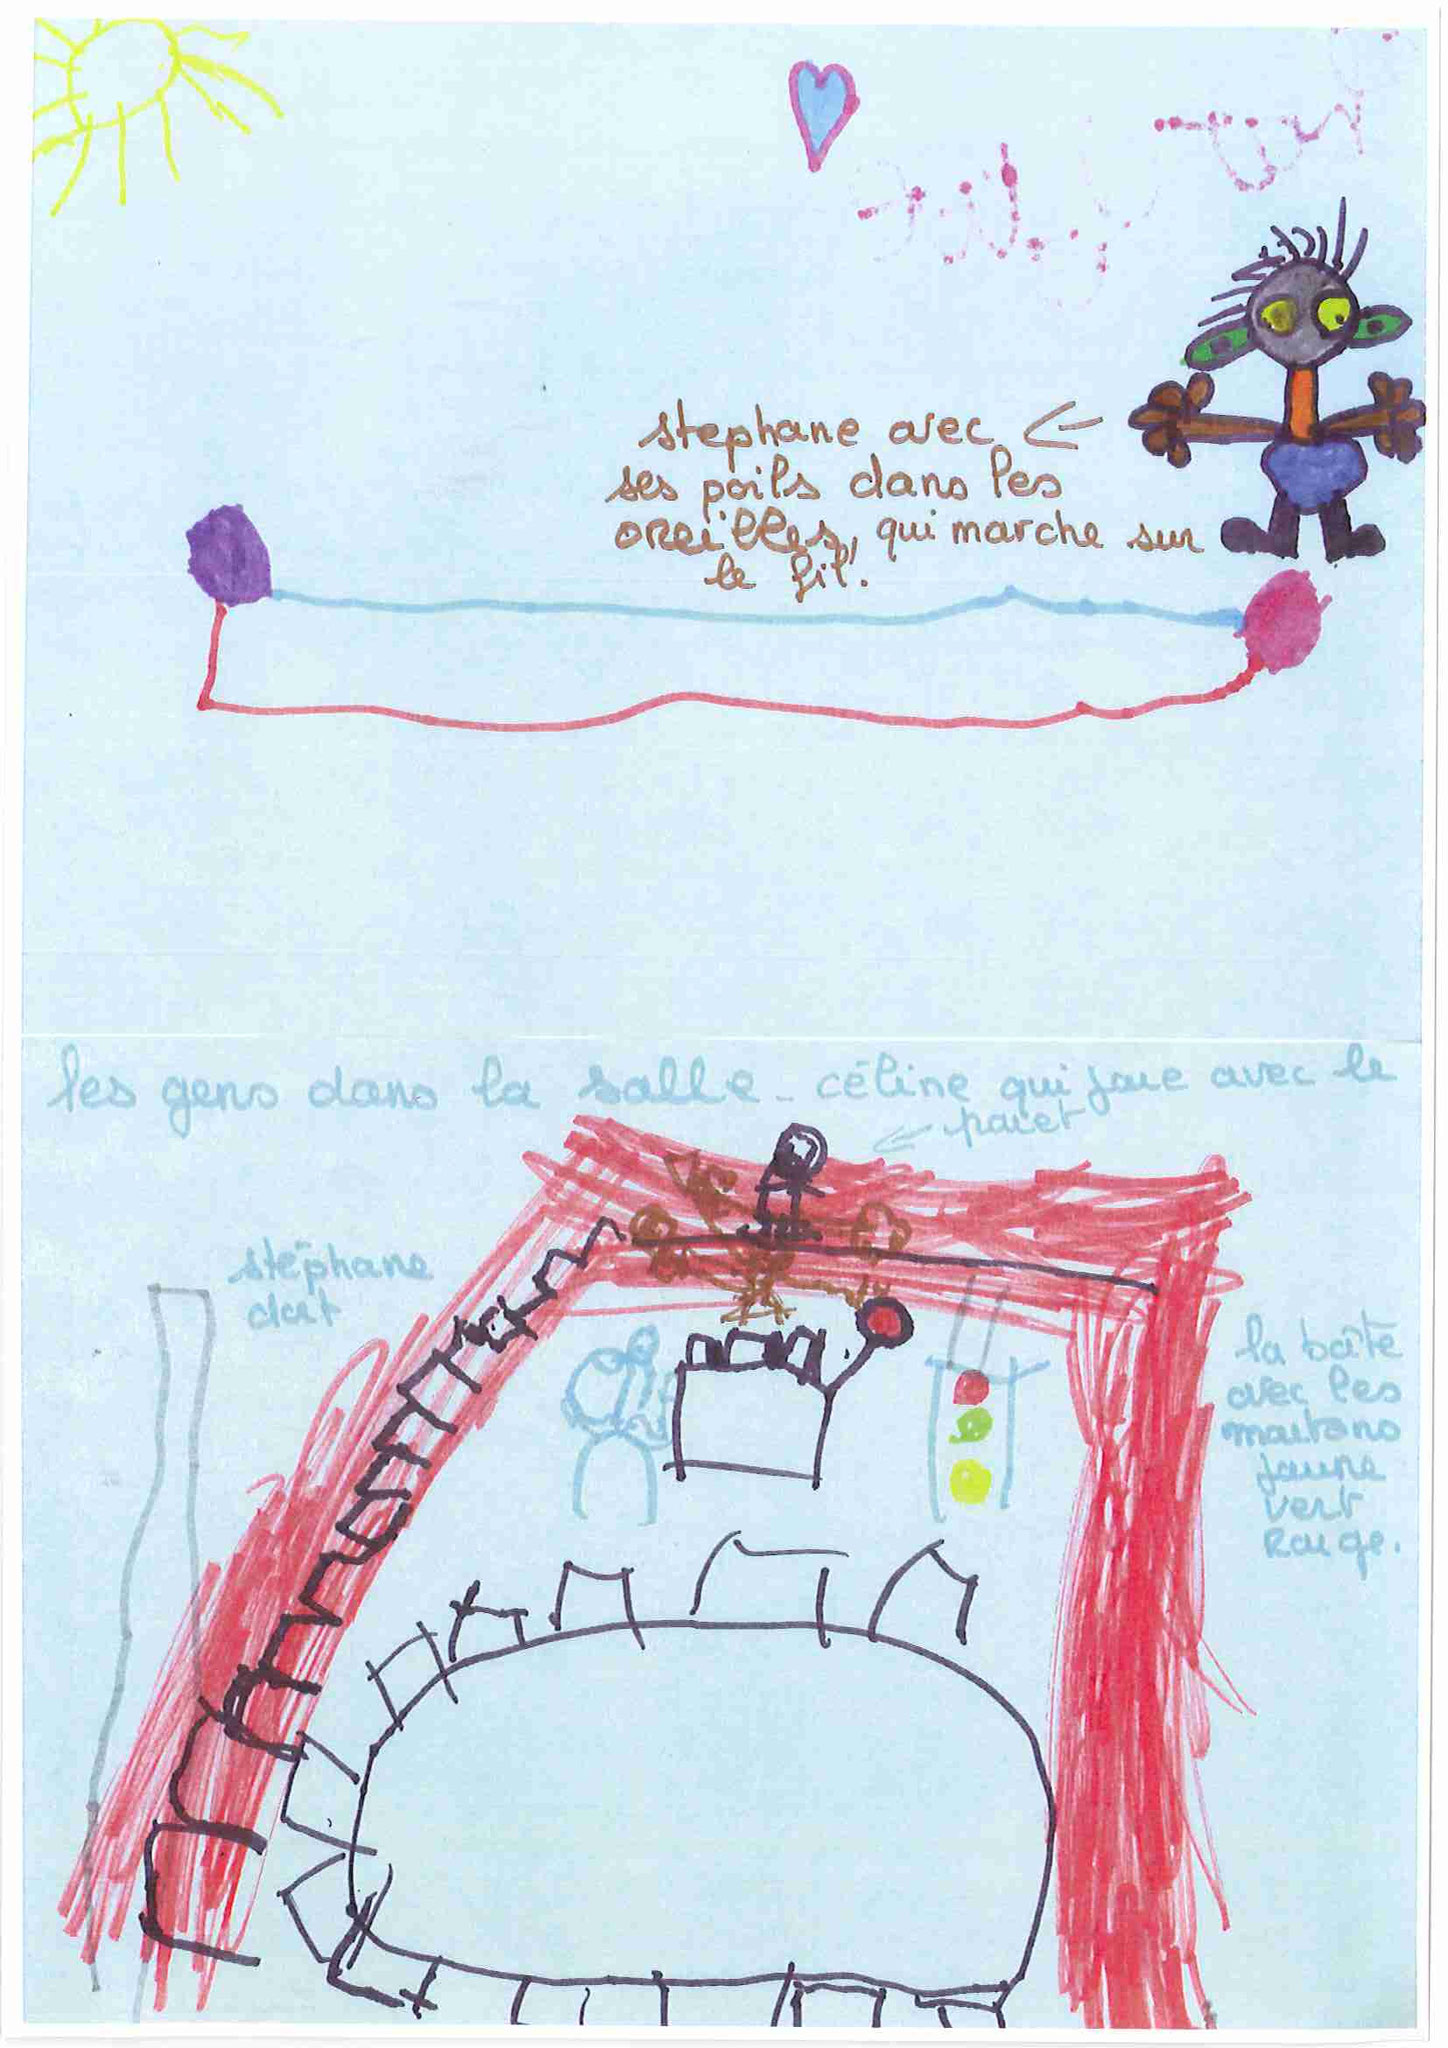 stephane avec
ses poils dans les
oreilles, qui marche sur
le fil.
les gens dans la salle - céline qui joue avec le
stéphane
dort
la boîte
avec les
jaune
vert
rouge.